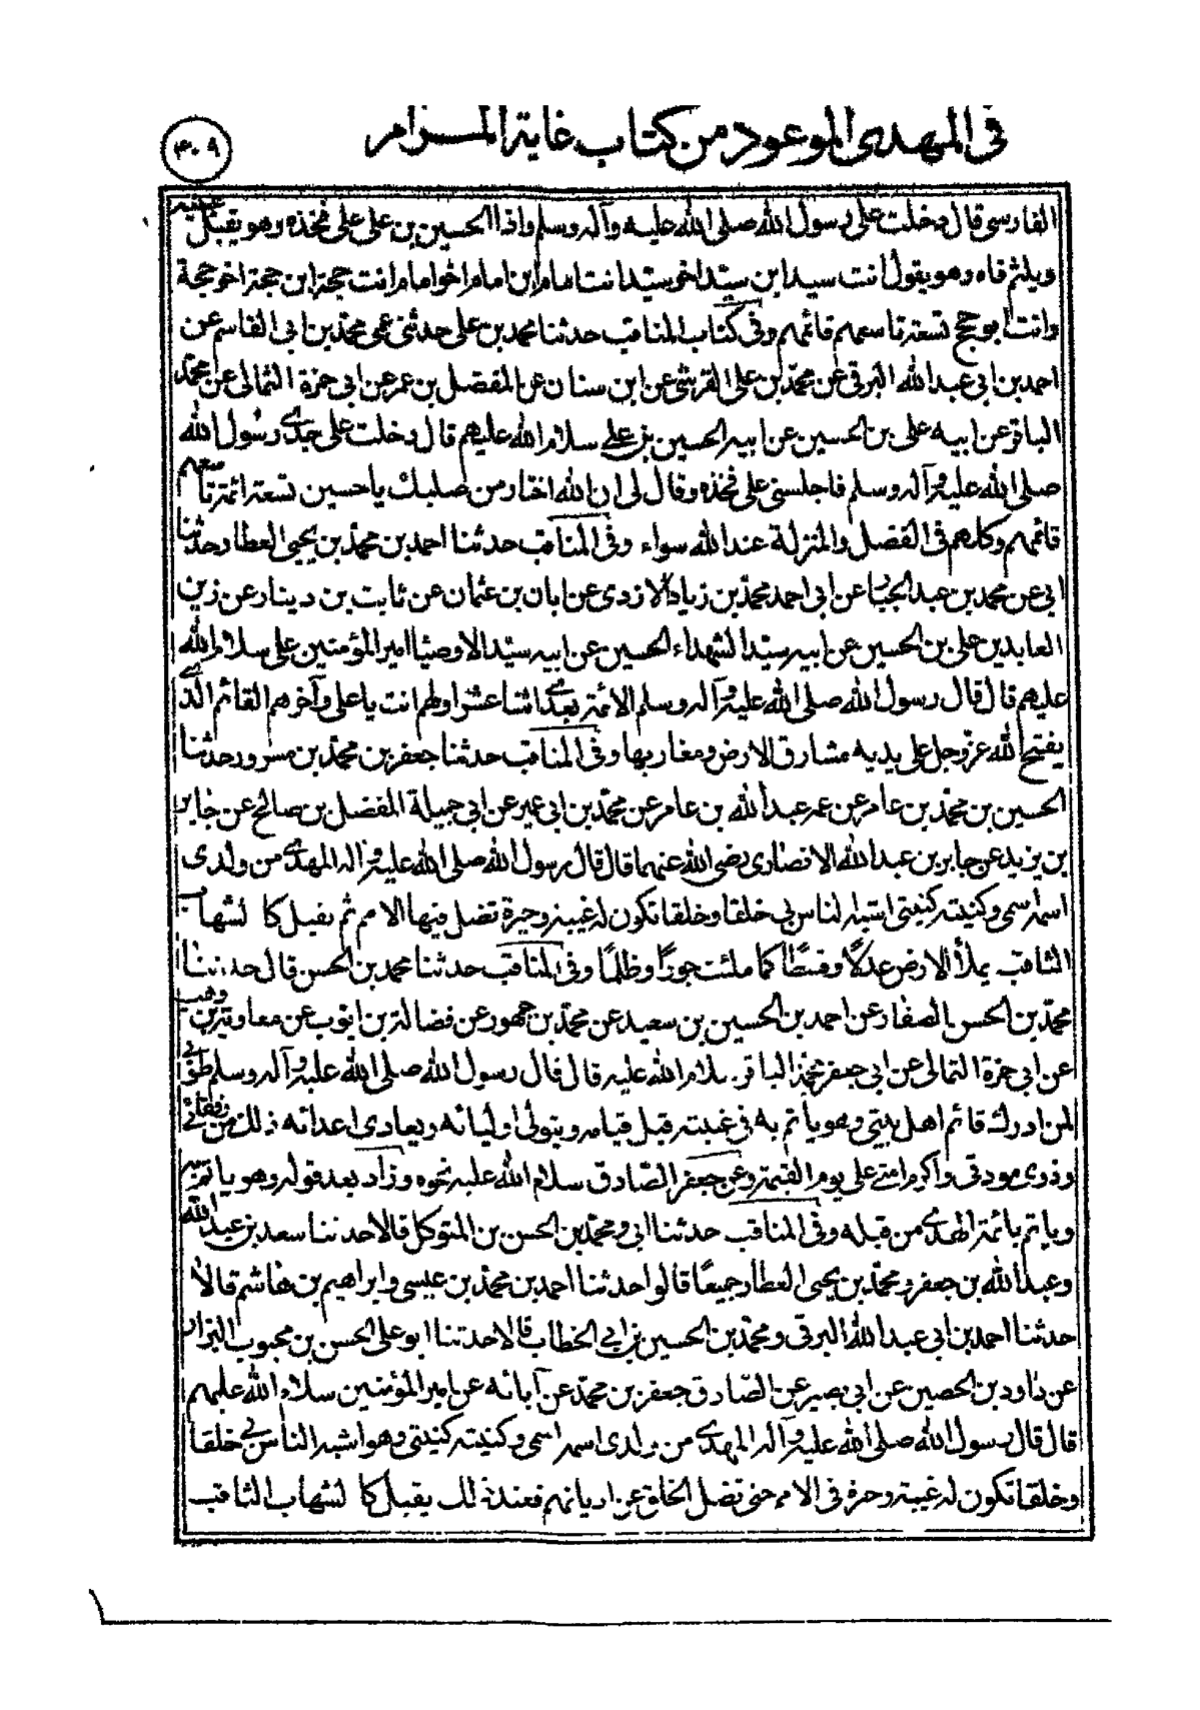 في المهدي الموعود من كتاب غاية المرام
٣٠٩
الفارسي قال دخلت على رسول الله صلى الله عليه وآله وسلم واذا الحسين بن على على فخذه وهو يقبل عينيه
ويلثم فاه وهو يقول انت سيد ابن سيد اخو سيد انت امام ابن امام اخو امام انت حجة ابن حجة اخو حجة
وانت ابو حجج تسعة تاسعهم قائمهم وفي كتاب المناقب حدثنا محمد بن على حدثنى عمى محمد بن ابى القاسم عن
احمد بن ابى عبد الله البرقى عن محمد بن على القرشى عن ابن سنان عن المفضل بن عمر عن ابى حمزة الثمالى عن محمد
الباقر عن ابيه على بن الحسين عن ابيه الحسين بن على سلام الله عليهم قال دخلت على جدى رسول الله
صلى الله عليه وآله وسلم فاجلسنى على فخذه وقال لى ان الله اختار من صلبك يا حسين تسعة ائمة تاسعهم
قائمهم وكلهم فى الفضل والمنزلة عند الله سواء وفى المناقب حدثنا احمد بن محمد بن يحيى العطار حدثنا
ابى عن محمد بن عبد الجبار عن ابى احمد محمد بن زياد الازدى عن ابان بن عثمان عن ثابت بن دينار عن زين
العابدين على بن الحسين عن ابيه سيد الشهداء الحسين عن ابيه سيد الاوصيا امير المؤمنين على سلام الله
عليهم قال قال رسول الله صلى الله عليه وآله وسلم الائمة بعدى اثنا عشر اولهم انت يا على وآخرهم القائم الذى
يفتح الله عز وجل على يديه مشارق الارض ومغاربها وفى المناقب حدثنا جعفر بن محمد بن مسرور حدثنا
الحسين بن محمد بن عامر عن عمه عبد الله بن عامر عن محمد بن ابى عمير عن ابى جميلة المفضل بن صالح عن جابر
بن يزيد عن جابر بن عبد الله الانصارى رضى الله عنهما قال قال رسول الله صلى الله عليه وآله المهدى من ولدى
اسمه اسمى وكنيته كنيتى اشبه الناس بى خلقا وخلقا تكون له غيبة وحيرة تضل فيها الامم ثم يقبل كا لشهاب
الثاقب يملأ الارض عدلا وقسطا كما ملئت جورا وظلما وفى المناقب حدثنا محمد بن الحسن قال حدثنا
محمد بن الحسن الصفار عن احمد بن الحسين بن سعيد عن محمد بن جمهور عن فضالة بن ايوب عن معاوية بن وهب
عن ابى حمزة الثمالى عن ابى جعفر محمد الباقر سلام الله عليه قال قال رسول الله صلى الله عليه وآله وسلم طوبى
لمن ادرك قائم اهل بيتى وهو يأتم به فى غيبته قبل قيامه ويتولى اوليائه ويعادى اعدائه ذلك من رفقائى
وذوى مودتى واكرم امتى على يوم القيمة وعن جعفر الصادق سلام الله عليه نحوه وزاد بعد قوله وهو ياتم به
وياتم بائمة الهدى من قبله وفى المناقب حدثنا ابى ومحمد بن الحسن بن المتوكل قالا حدثنا سعد بن عبد الله
وعبد الله بن جعفر ومحمد بن يحيى العطار جميعا قالوا حدثنا احمد بن محمد بن عيسى وابراهيم بن هاشم قالا
حدثنا احمد بن ابى عبد الله البرقى ومحمد بن الحسين بن ابى الخطاب قالا حدثنا ابو على الحسن بن محبوب البزار
عن داود بن الحصين عن ابى بصير عن الصادق جعفر بن محمد عن آبائه عن امير المؤمنين سلام الله عليهم
قال قال رسول الله صلى الله عليه وآله المهدى من ولدى اسمه اسمى وكنيته كنيتى وهو اشبه الناس بى خلقا
وخلقا تكون له غيبة وحيرة فى الامم حتى تضل الخلق عن اديانهم فعند ذلك يقبل كا لشهاب الثاقب